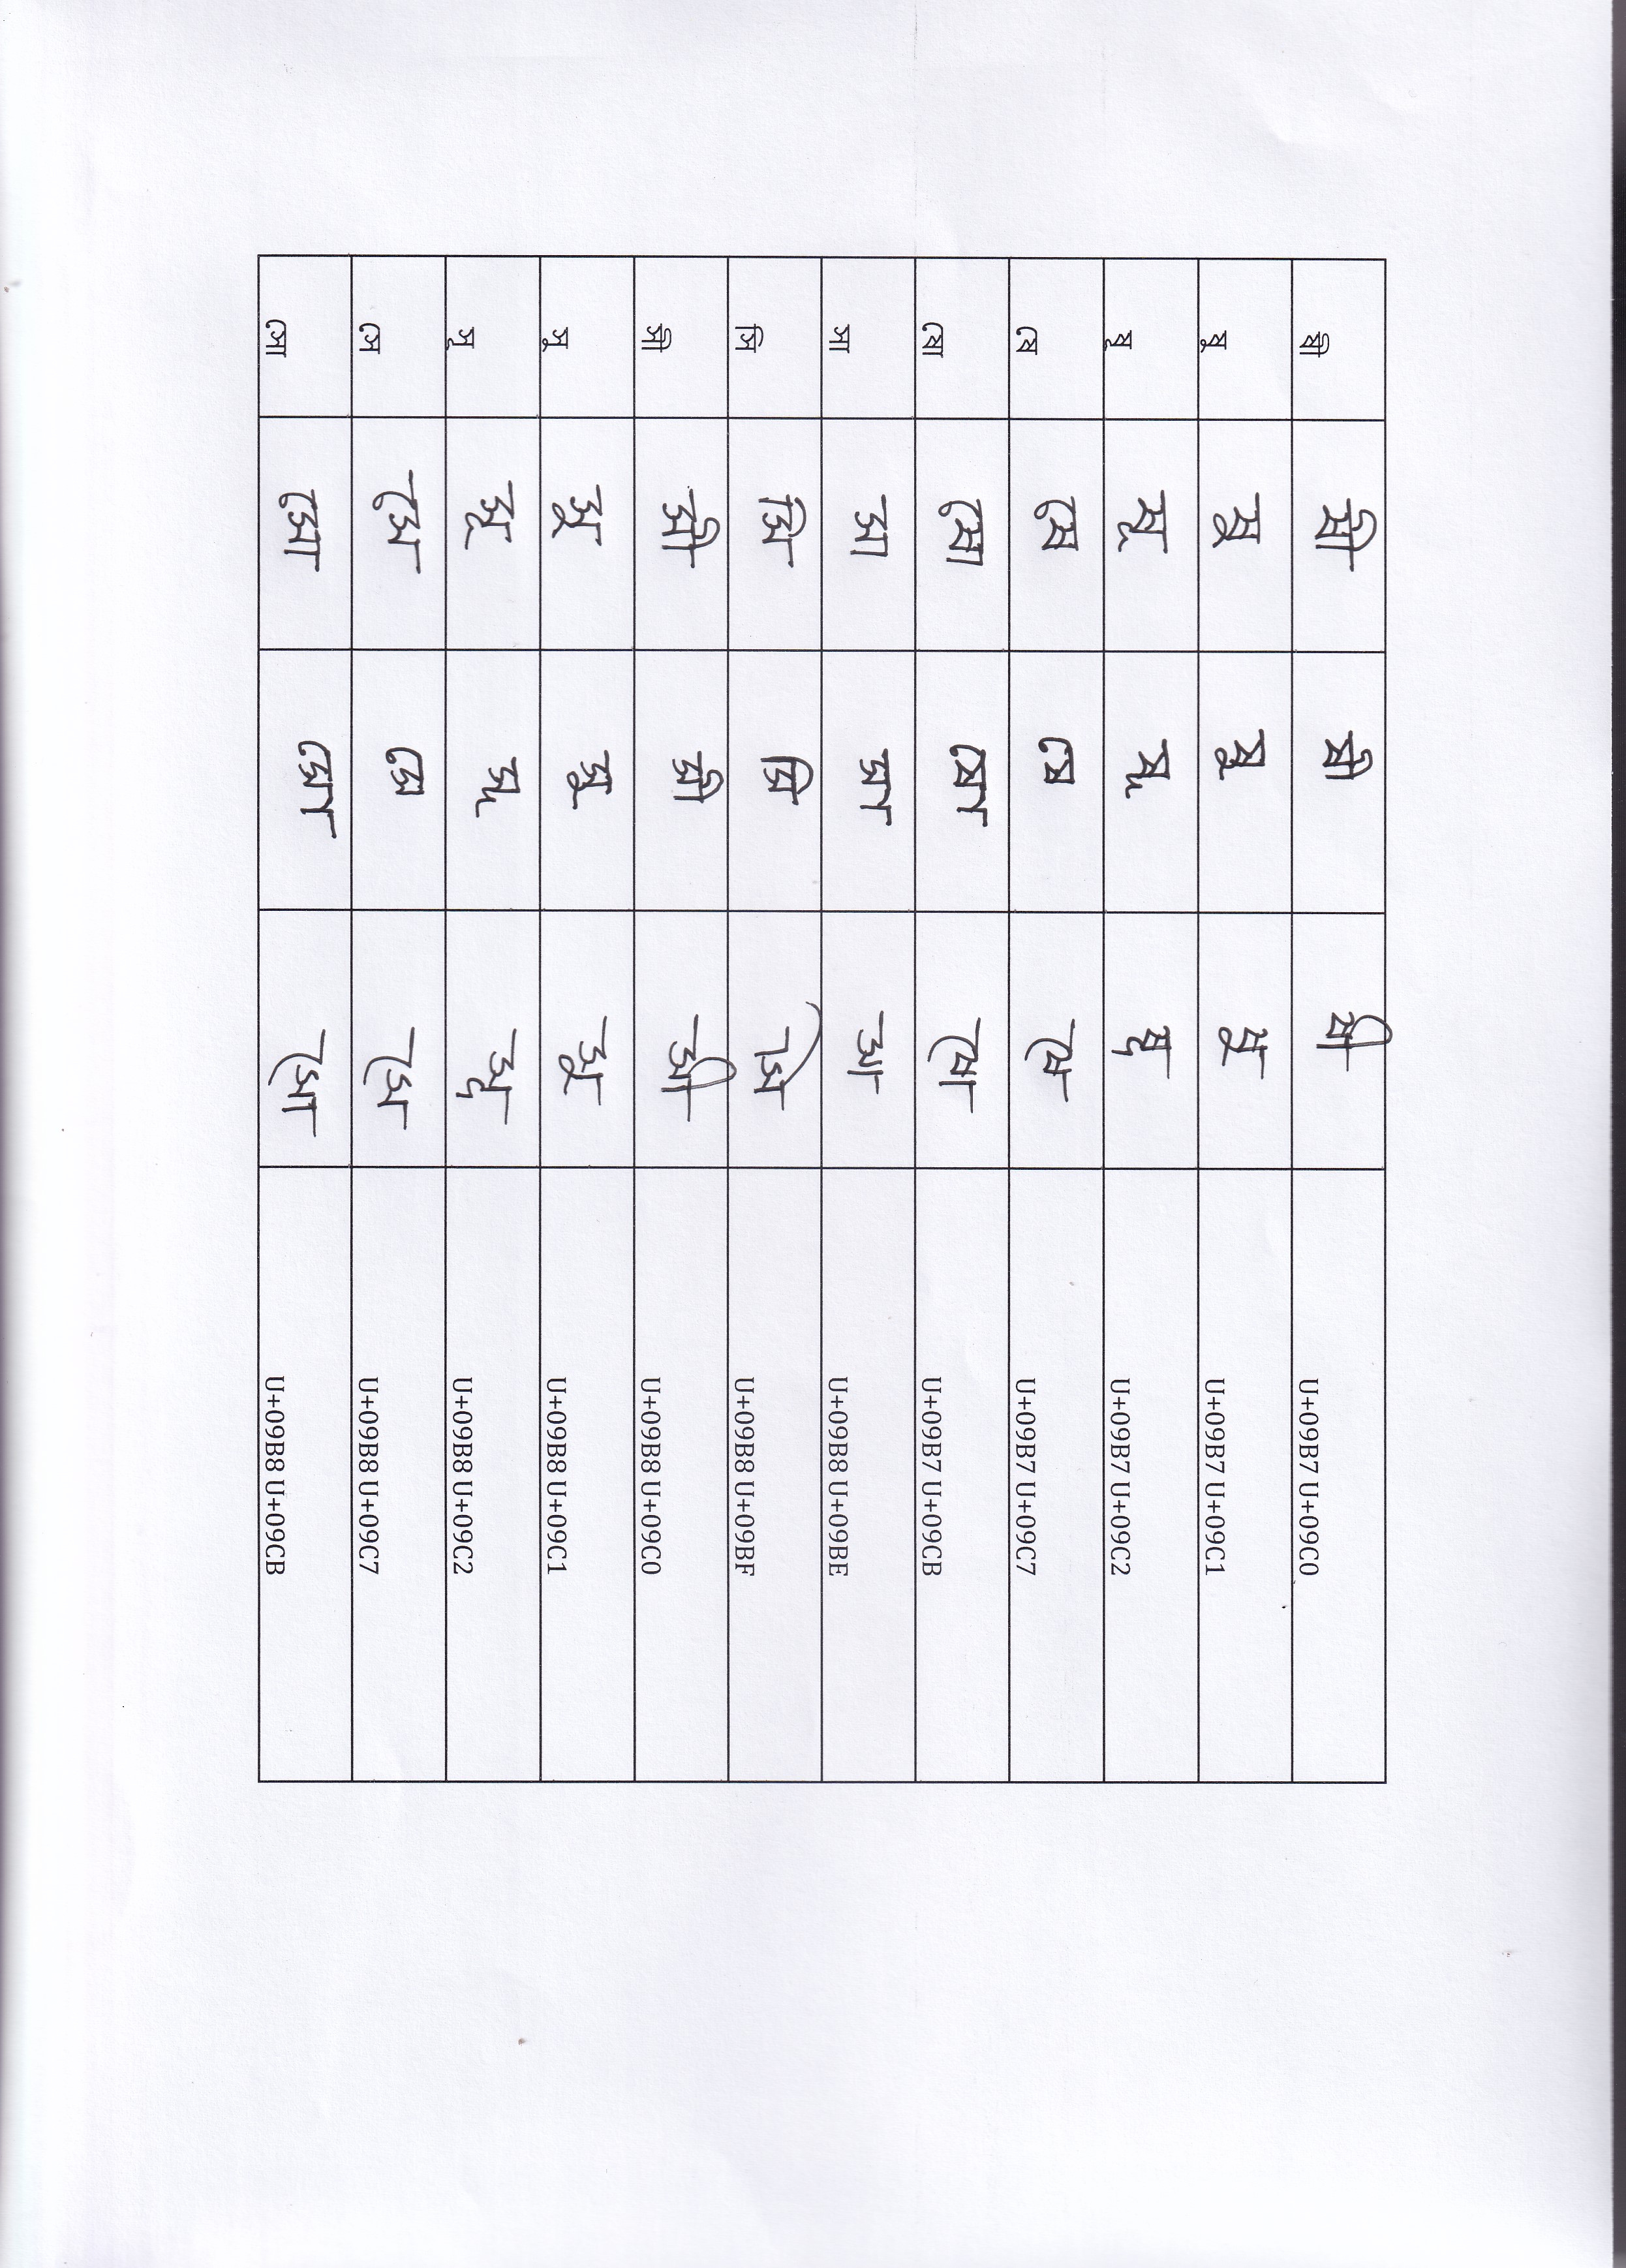 ষী ষী ষী ষী U+09B7 U+09C0
ষু ষু ষু ষু U+09B7 U+09C1
ষূ ষূ ষূ ষূ U+09B7 U+09C2
ষে ষে ষে ষে U+09B7 U+09C7
ষো ষো ষো ষো U+09B7 U+09CB
সা সা সা সা U+09B8 U+09BE
সি সি সি সি U+09B8 U+09BF
সী সী সী সী U+09B8 U+09C0
সু সু সু সু U+09B8 U+09C1
সূ সূ সূ সূ U+09B8 U+09C2
সে সে সে সে U+09B8 U+09C7
সো সো সো সো U+09B8 U+09CB